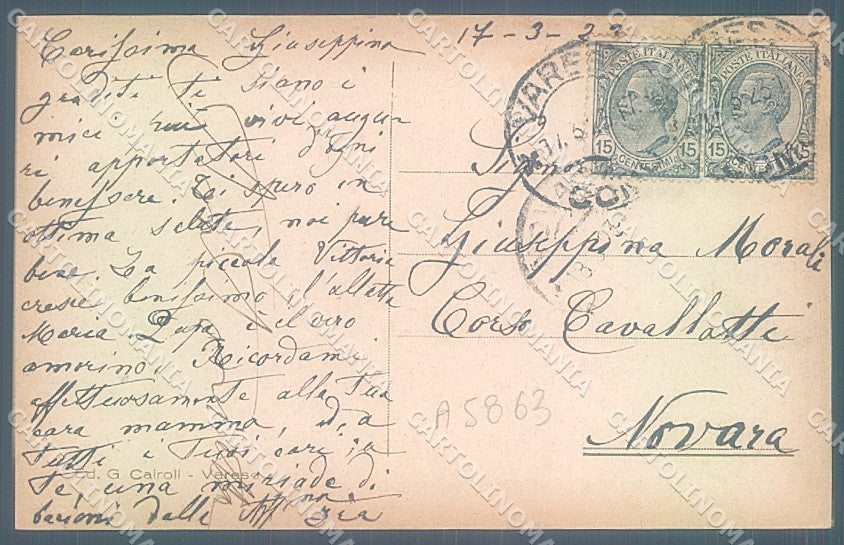 17-3-23
Carissima Giuseppina
graditi ti siano i
miei più vivi augu-
ri apportatori d'ogni
benessere. Ti spero in
ottima salute, noi pure
bene. La piccola Vittoria
cresce benissimo, l'alletta
Maria Papa è il vero
amorino. Ricordami
affettuosamente alla tua
cara mamma, ed a
tutti i tuoi cari; a
te, una miriade di
bacioni dalla zia
Ed. G. Cairoli - Varese
POSTE ITALIANE
15 CENTESIMI 15
POSTE ITALIANE
15 CENTESIMI 15
VARESE
COMO
Giuseppina Morali
Corso Cavallotti
Novara
A5863
CARTOLINOMANIA